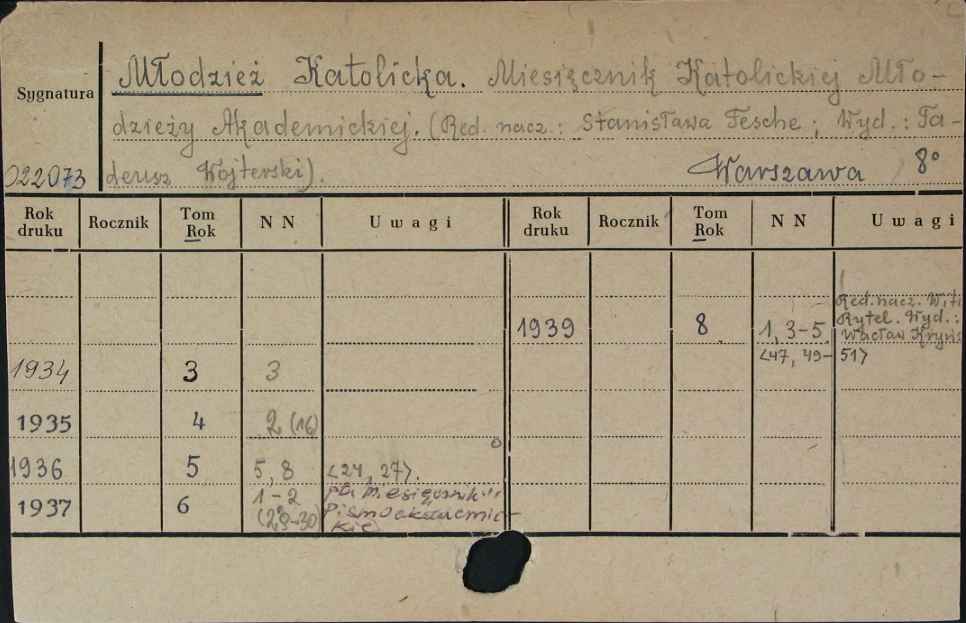 Młodzież Katolicka. Miesięcznik Katolickiej Mło-
Sygnatura
dzieży Akademickiej. (Red. nacz.: Stanisława Fesche; Wyd.: Ta-
022073 deusz Wojterski). Warszawa 8°
Rok druku Rocznik Tom Rok N N Uwagi Rok druku Rocznik Tom Rok N N Uwagi
Red. nacz. Wit
Rytel. Wyd.:
1939 8 1, 3-5. Wacław Kryńs
<47, 49- 51>
1934 3 3
1935 4 2 (16)
1936 5 5, 8 <24, 27>.
1937 6 1-2 pt. Miesięcznik
(29-30) Pismo akademic-
kie